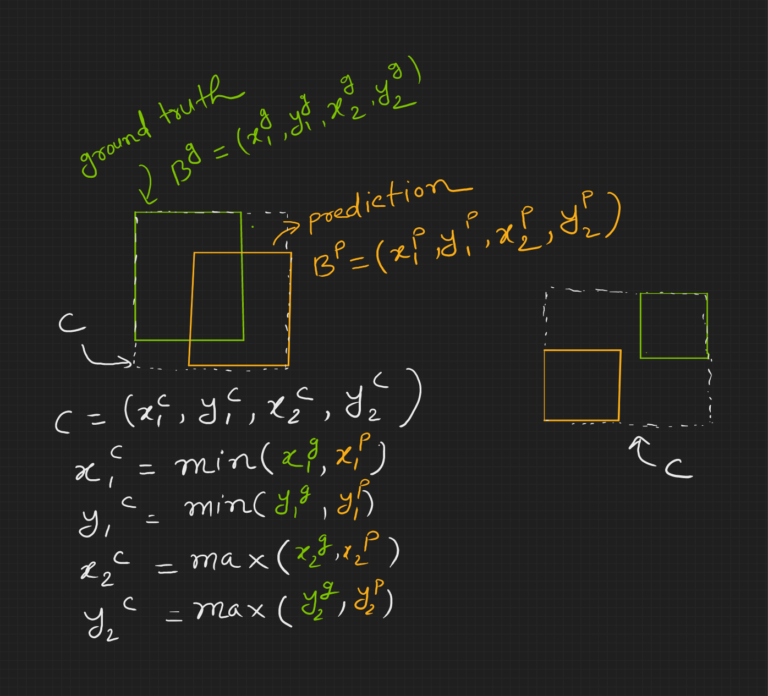 ground truth
B^g = (x_1^g, y_1^g, x_2^g, y_2^g)
prediction
B^p = (x_1^p, y_1^p, x_2^p, y_2^p)
C
C = (x_1^c, y_1^c, x_2^c, y_2^c)
C
x_1^c = min(x_1^g, x_1^p)
y_1^c = min(y_1^g, y_1^p)
x_2^c = max(x_2^g, x_2^p)
y_2^c = max(y_2^g, y_2^p)